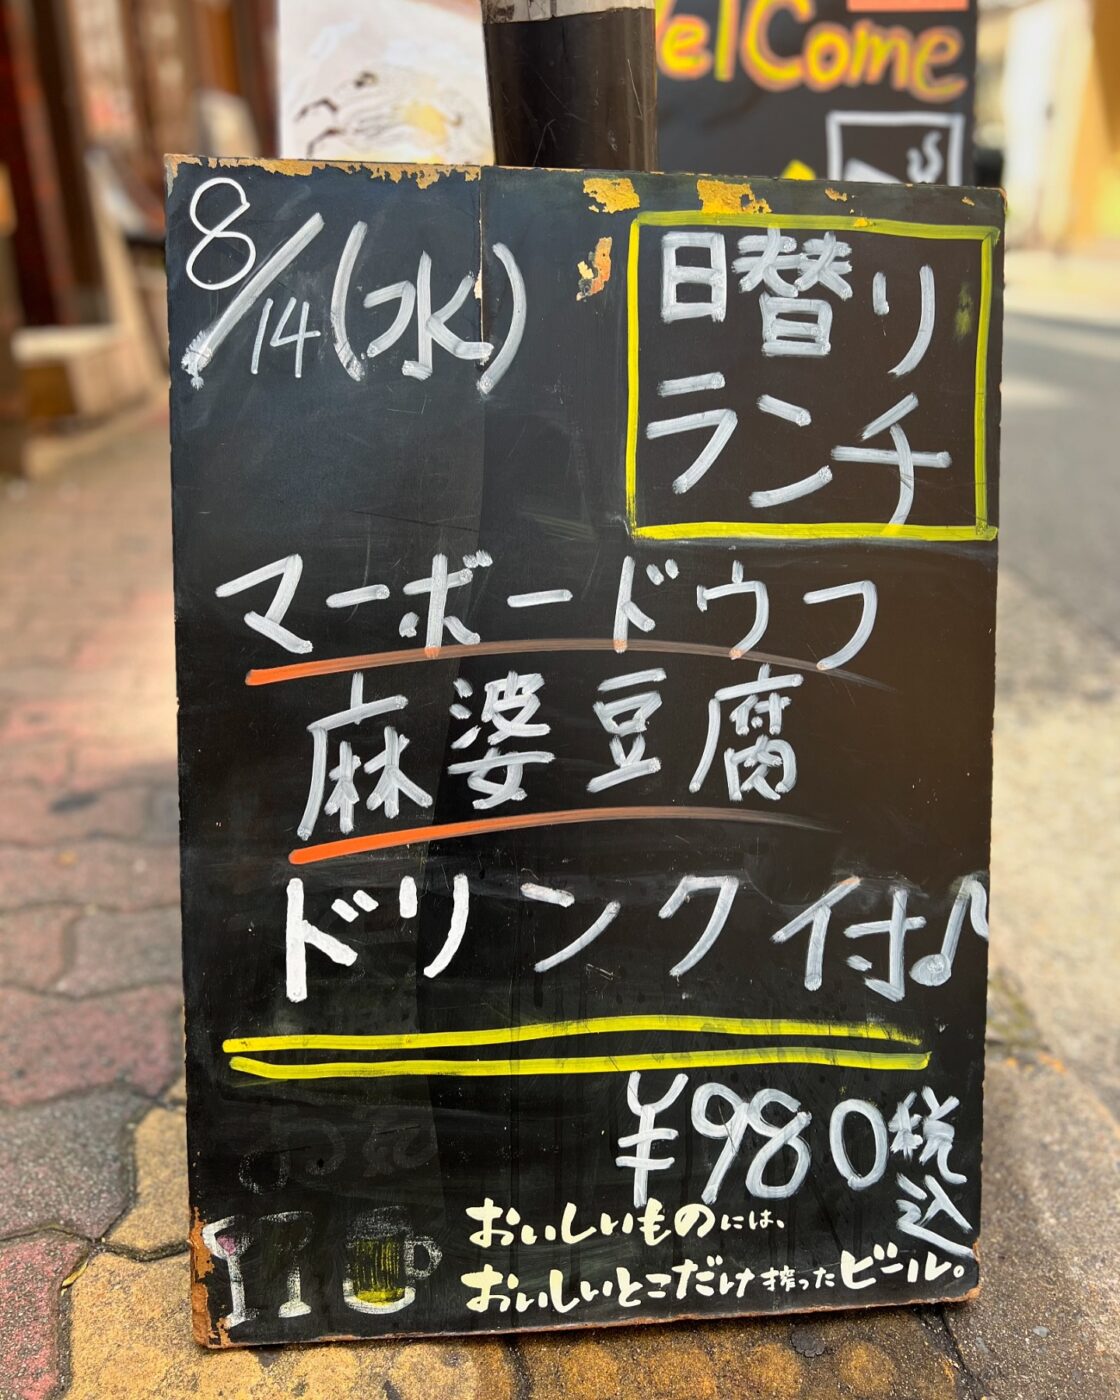 WelCome
8/14(水)
日替り
ランチ
マーボードウフ
麻婆豆腐
ドリンク付♪
¥980税込
おいしいものには、
おいしいとこだけ搾ったビール。